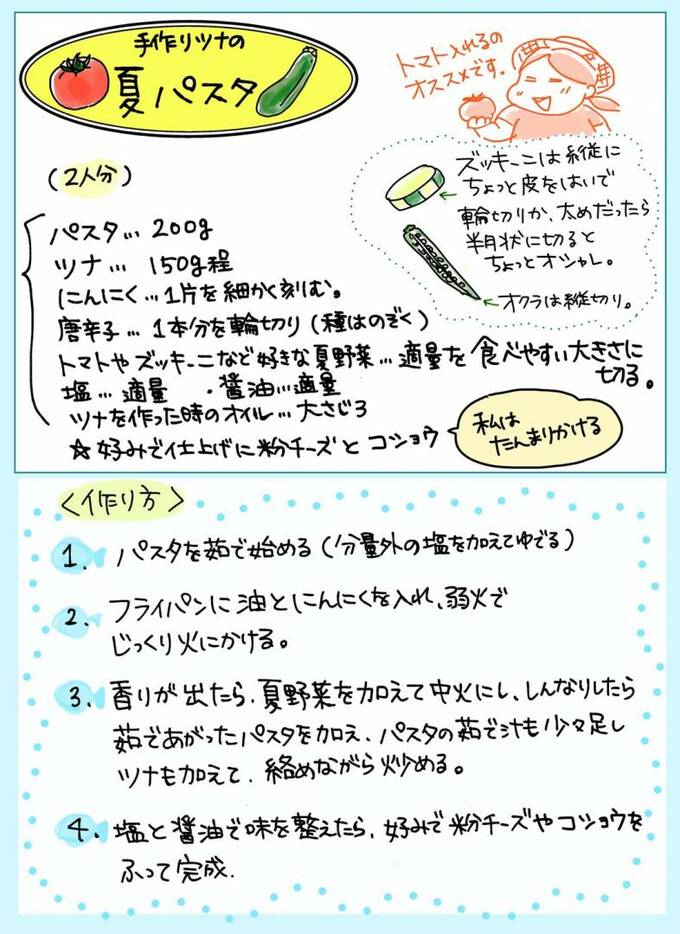 手作りツナの
夏パスタ
トマト入れるの
オススメです。
(2人分)
ズッキーニは縦に
ちょっと皮をはいで
輪切りか、太めだったら
半月状に切ると
ちょっとオシャレ。
オクラは縦切り。
パスタ… 200g
ツナ… 150g程
にんにく…1片を細かく刻む。
唐辛子…1本分を輪切り(種はのぞく)
トマトやズッキーニなど好きな夏野菜…適量を食べやすい大きさに
切る。
塩…適量 ・醤油…適量
ツナを作った時のオイル…大さじ3
☆好みで仕上げに粉チーズとコショウ
私は
たんまりかける
<作り方>
1. パスタを茹で始める(分量外の塩を加えてゆでる)
2. フライパンに油とにんにくを入れ、弱火で
じっくり火にかける。
3. 香りが出たら、夏野菜を加えて中火にし、しんなりしたら
茹であがったパスタを加え、パスタの茹で汁も少々足し
ツナも加えて、絡めながら炒める。
4. 塩と醤油で味を整えたら、好みで粉チーズやコショウを
ふって完成.